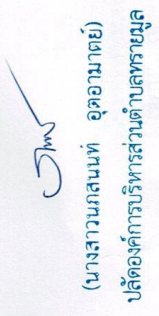 (นางสาวนภสนนท์ อุตอามาตย์)
ปลัดองค์การบริหารส่วนตำบลทรายมูล